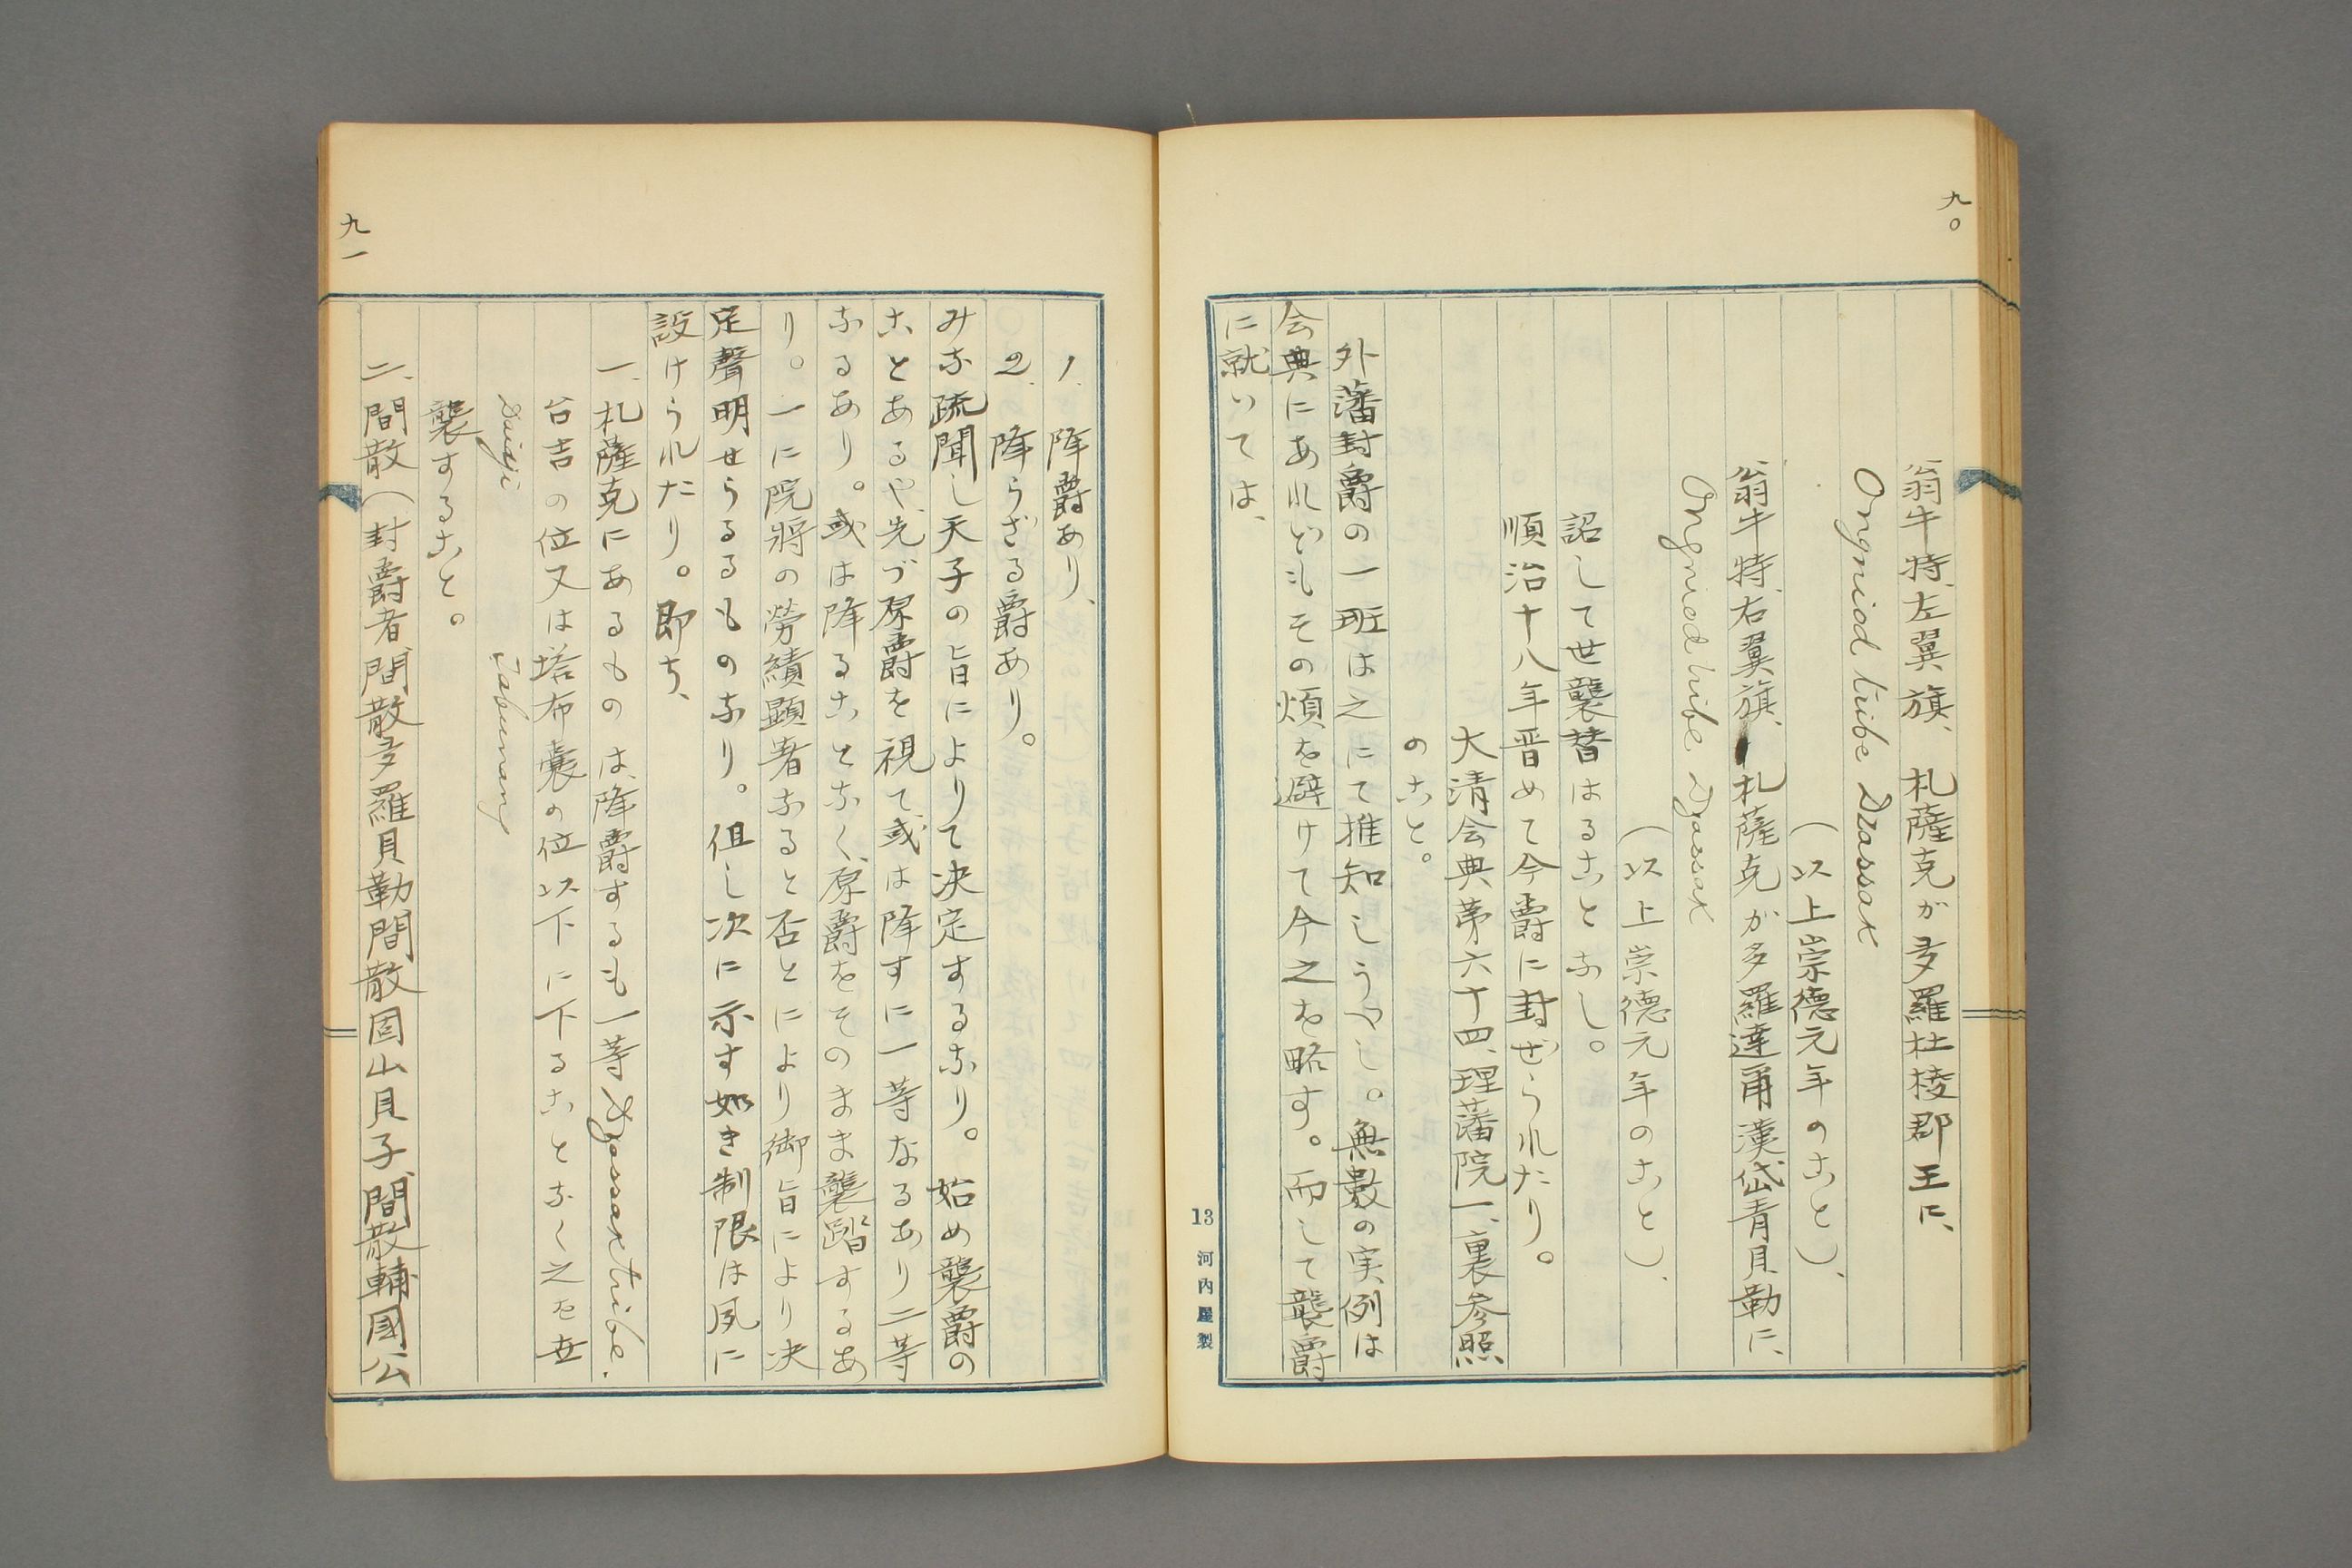 九〇
翁牛特、左翼旗、札薩克が多羅杜棱郡王に、
Ongniod tribe Dzassax
(以上崇德元年のこと)、
翁牛特、右翼旗、札薩克が多羅達甬漢岱青貝勒に、
Ongnied tribe Dzassax
(以上崇德元年のこと)、
詔して世襲替はることなし。
順治十八年晋めて今爵に封ぜられたり。
大清会典第六十四、理藩院一、裏参照
のこと。
外藩封爵の一班は之にて推知しうべし。無數の実例は
会典にあれどもその煩を避けて今之を略す。而して襲爵
に就いては、
13 河内屋製
九一
1. 降爵あり、
2. 降らざる爵あり。
みな疏聞し天子の旨によりて决定するなり。始め襲爵の
ことあるや、先づ原爵を視て、或は降すに一等なるあり二等
なるあり。或は降ることなく、原爵をそのまま襲踏するあ
り。一に院將の勞績顯者なると否とにより御旨により决
定聲明せらるるものなり。但し次に示す如き制限は夙に
設けられたり。即ち、
一、札薩克にあるものは、降爵するも一等 Dzassax tribe.
台吉の位又は塔布囊の位以下に下ることなく之を世
Daiji Tabunang
襲すること。
二、間散(封爵者、間散多羅貝勒間散固山貝子、間散輔國公